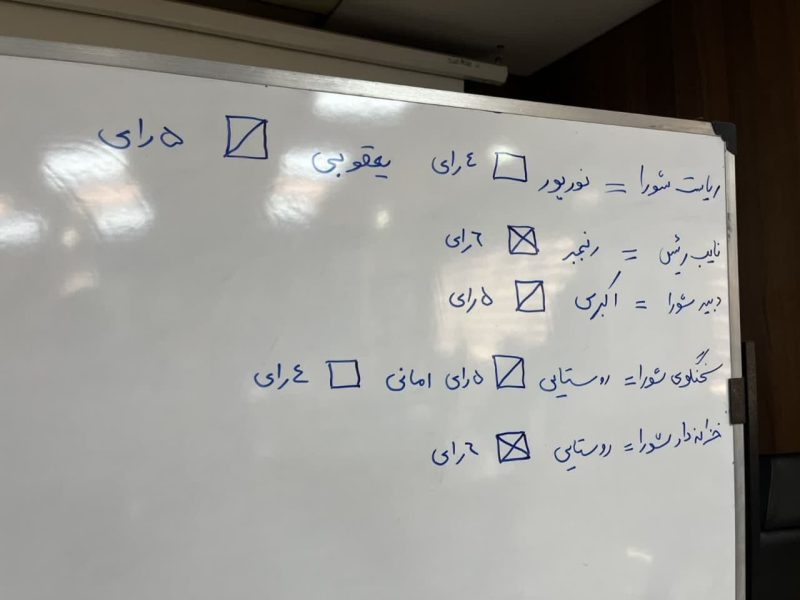 ریاست شورا = نورپور ٤ رای یعقوبی ۵ رای
نایب رئیس = رنجبر ٦ رای
دبیر شورا = اکبری ۵ رای
سخنگوی شورا = روستایی ۵ رای امانی ٤ رای
خزانه دار شورا = روستایی ٦ رای